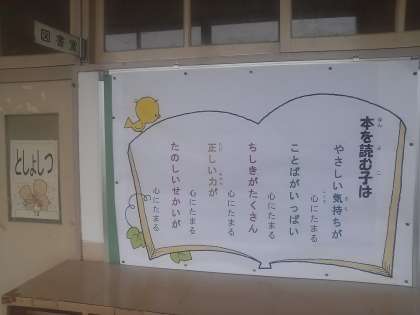 図書室
としょしつ
本を読む子は
やさしい気持ちが
心にたまる
ことばがいっぱい
心にたまる
ちしきがたくさん
心にたまる
正しい力が
心にたまる
たのしいせかいが
心にたまる